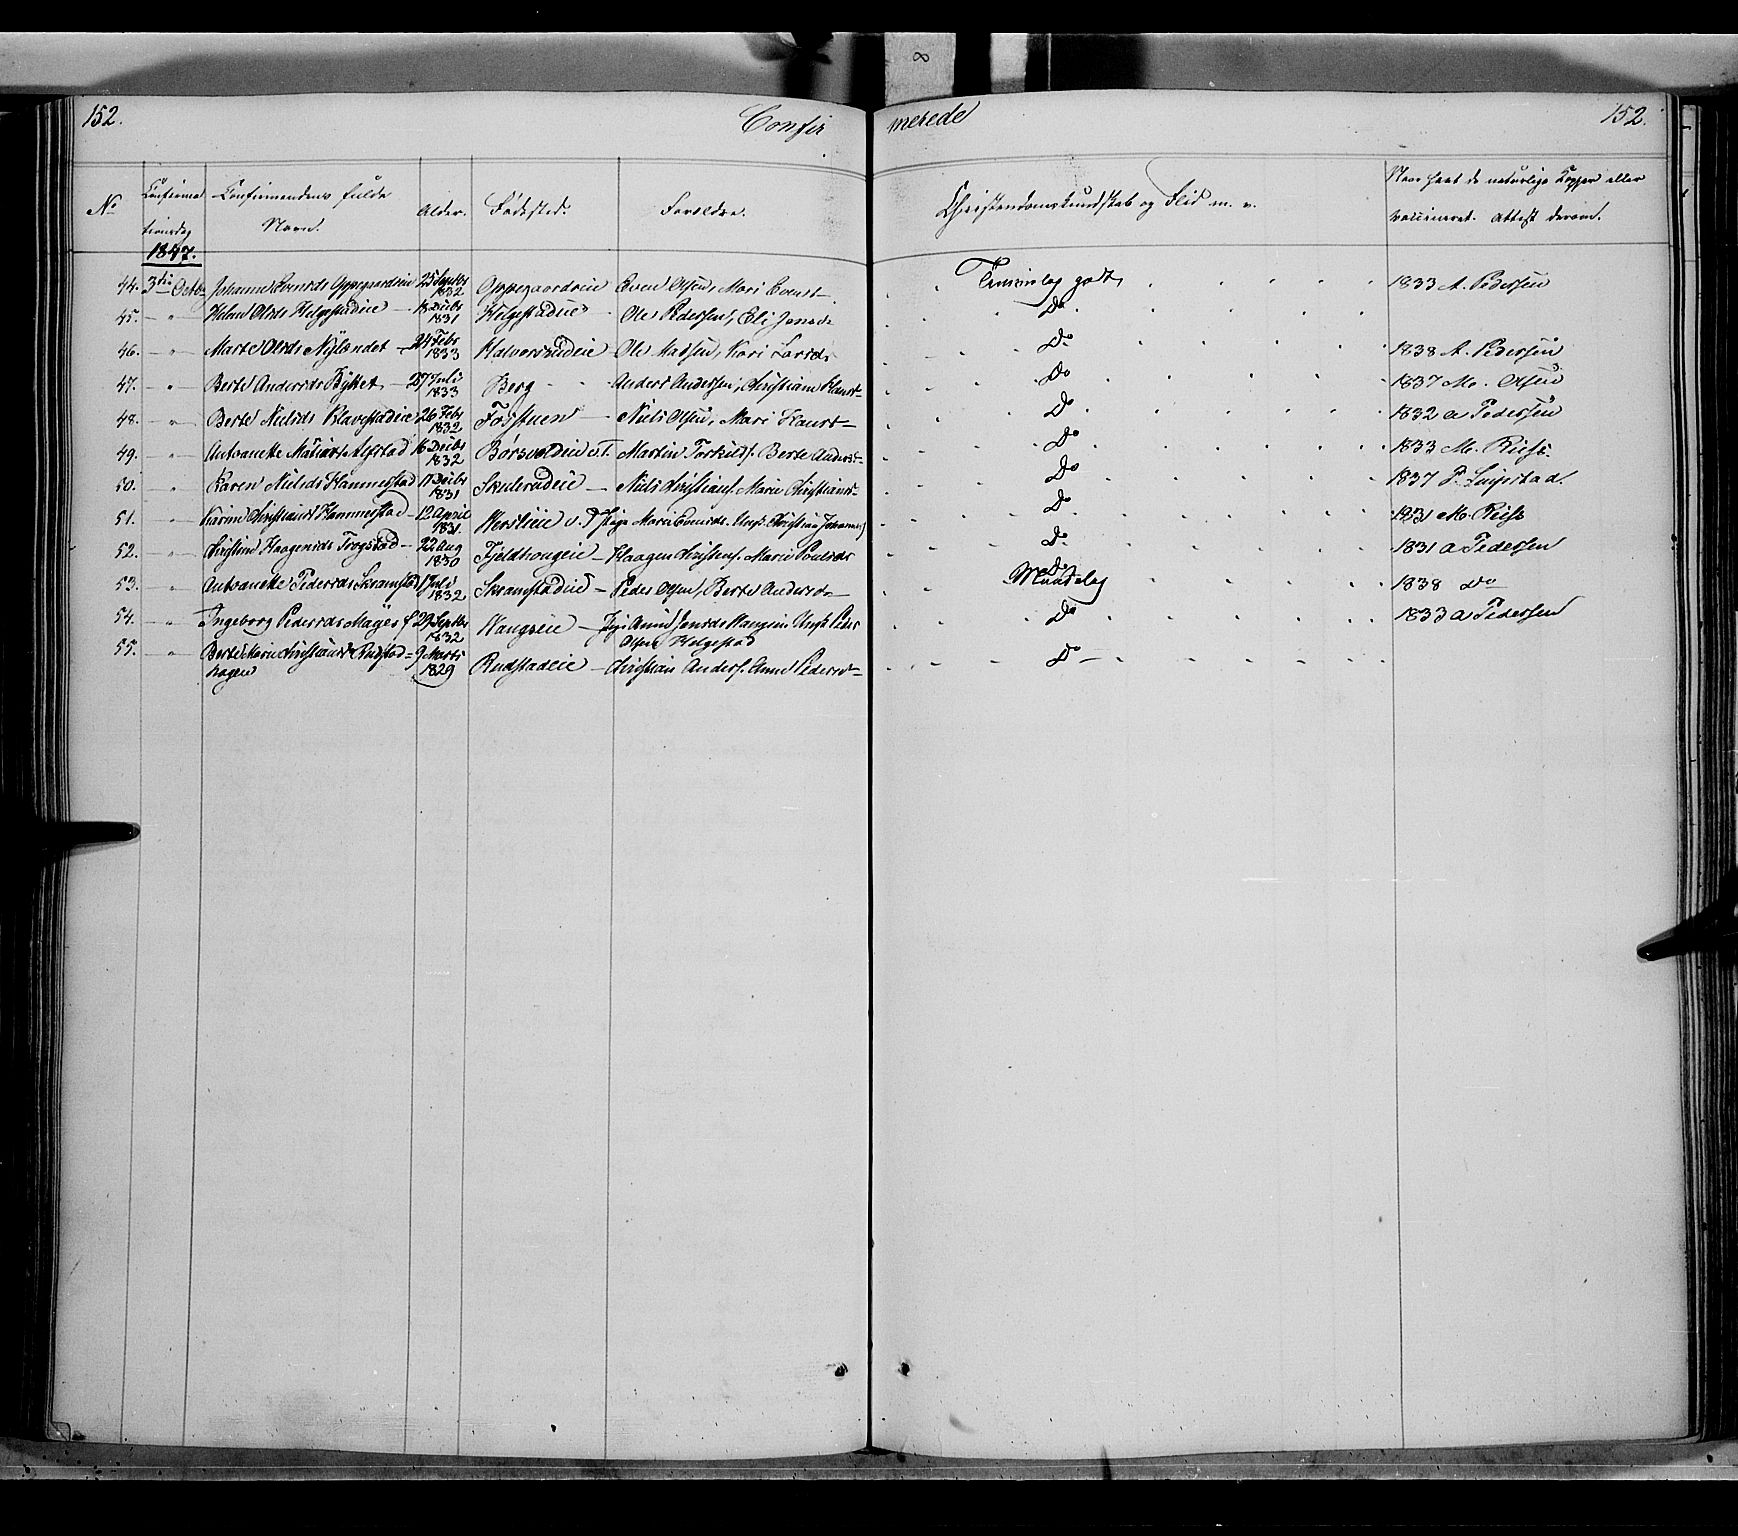 8
152. Confir merede 152.
No Confirma Confirmandens fulde Alder. Fødested. Forældre. Christendomskundskab og Flid m. v. Naar havt de naturlige Kopper eller
tionsdag Navn. vaccineret. Attest derom.
1847.
44. 3die Octo Johanne Evensd Oppegaardseie 25 Septbr 1832 Oppegaardseie Even Olsen, Mari Evensd Temmelig godt 1833 A. Pedersen
45. - " Helene Olsd Helgestadeie 18 Decbr 1831 Helgestadeie Ole Pedersen, Eli Jensd Do
46. - " Marte Olesd Nylændet 24 Febr 1833 Halvorsrudeie Ole Madsen, Kari Larsd Do 1838 A. Pedersen
47. - " Berte Andersd Byttet 27 Juli 1833 Berg Anders Andersen, Christiane Hansd Do 1837 M. Olsen
48. - " Berte Nielsd Klavestadeie 26 Febr 1832 Fostuen Niels Olsen, Mari Hansd Do 1832 A Pedersen
49. - " Antonette Alfstad 16 Decbr 1832 Børsvoldeie v. T. Martin Torkilds. Berte Andersd Do 1833 M. Riise
50. - " Karen Nielsd Hammerstad 17 Decbr 1831 Skulerudeie Niels Christians. Marie Christiansd Do 1837 P.
51. - " Karine Christiansd Hammerstad 12 April 1831 v. T Pige Mari Evensd. Ungk. Christian Johannes Do 1831 M. Riise
52. - " Christine Haagensd Trogstad 22 Aug 1830 Fjeldhougeie Haagen Christens. Marie Poulsd Do 1831 A Pedersen
53. - " Antonette Pedersd Skramstad 1 Juli 1832 Skramstadeie Peder Olsen, Berte Andersd Do Maadelig 1838 Do
54. - " Ingeborg Pedersd 29 Septbr 1832 Wangseie Pige Jensd Wangseie Ungk Peder Do 1833 A Pedersen
Olsen Helgestad
55. Berte Marie Christiansd Rudstad- 9 Marts 1829 Rudstadeie Christian Anders. Anne Pedersd Do
hagen